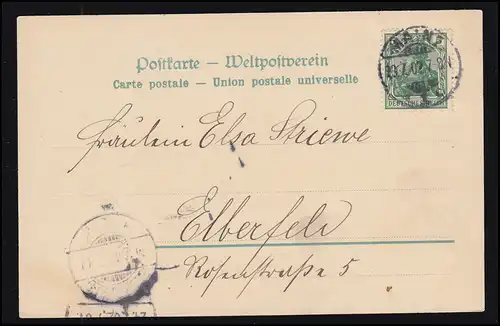 Postkarte – Weltpostverein
Carte postale – Union postale universelle
MAINZ
DEUTSCHES REICH
Fräulein Elsa Striewe
Elberfeld
Rosenstraße 5